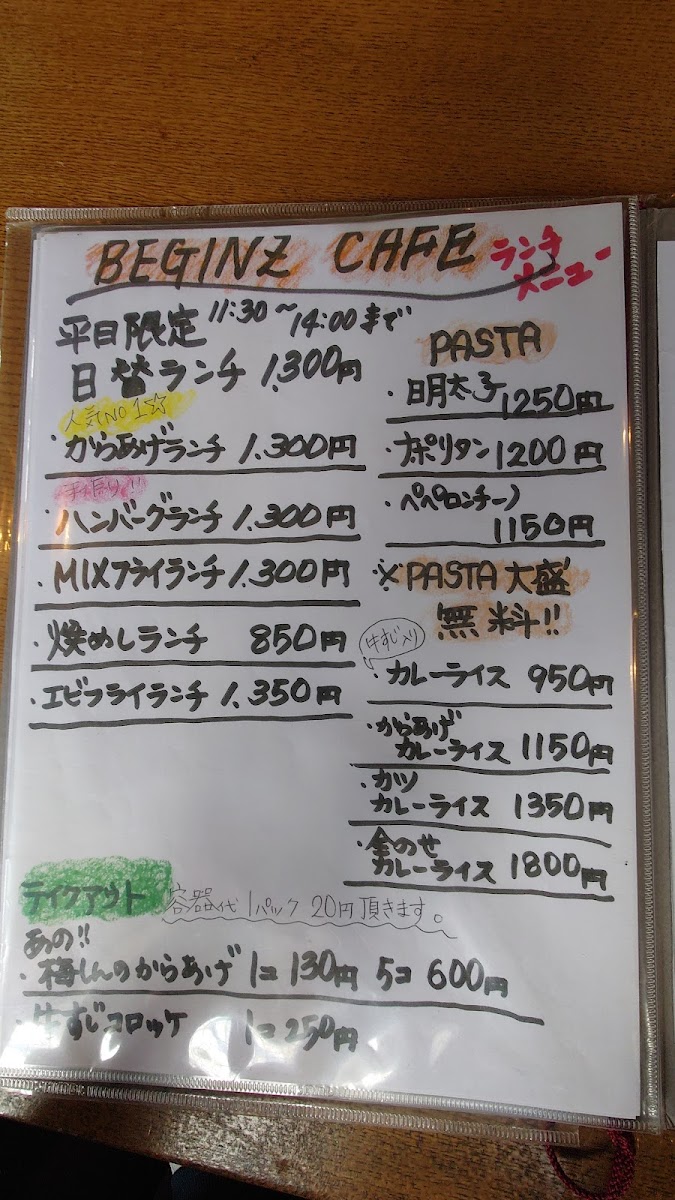 BEGINZ CAFE
ランチ
メニュー
平日限定 11:30～14:00まで
日替ランチ 1,300円
人気NO1☆
・からあげランチ 1,300円
手作り!!
・ハンバーグランチ 1,300円
・MIXフライランチ 1,300円
・焼めしランチ 850円
・エビフライランチ 1,350円
PASTA
・明太子 1250円
・ナポリタン 1200円
・ペペロンチーノ
1150円
※PASTA大盛
無料!!
牛すじ入り
・カレーライス 950円
・からあげ
カレーライス 1150円
・カツ
カレーライス 1350円
・全のせ
カレーライス 1800円
テイクアウト 容器代1パック20円頂きます。
あの!!
・梅しんのからあげ 1コ 130円 5コ 600円
・牛すじコロッケ 1コ 250円